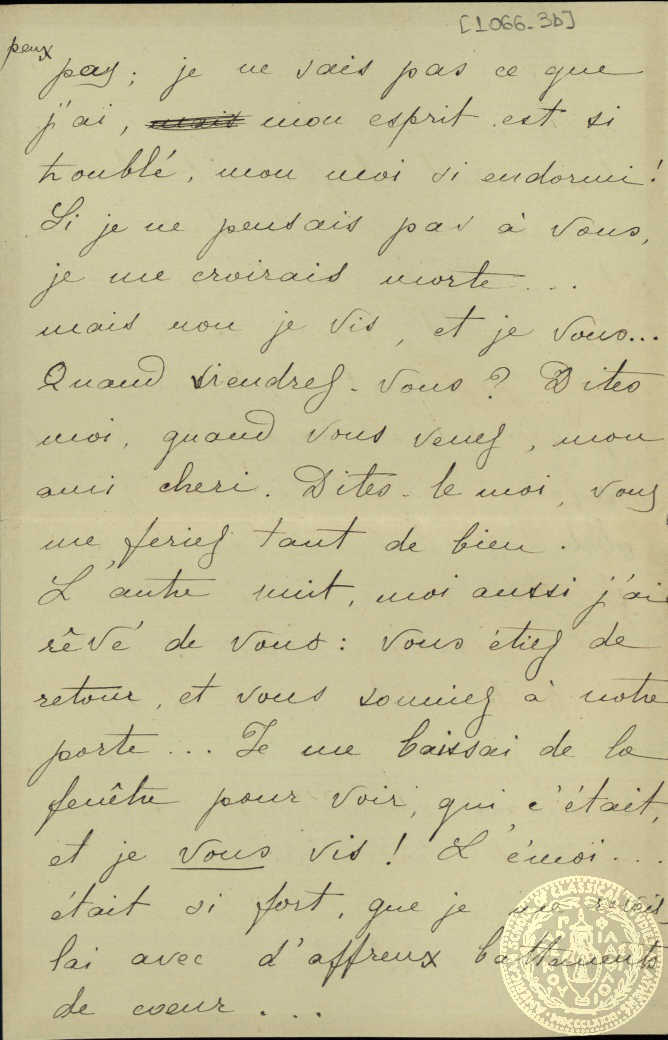 [1066-3b]
peux
pas; je ne sais pas ce que
j'ai, mais mon esprit est si
troublé, mon moi si endormi!
Si je ne pensais pas à vous,
je me croirais morte...
mais non je vis, et je vous...
Quand viendrez-vous? Dites
moi, quand vous venez, mon
ami cheri. Dites-le moi, vous
me feriez tant de bien.
L'autre nuit, moi aussi j'ai
rêvé de vous: vous étiez de
retour, et vous sonniez à notre
porte... Je me baissai de la
fenêtre pour voir, qui c'était,
et je vous vis! L'émoi...
était si fort, que je me réveil
lai avec d'affreux battements
de coeur...